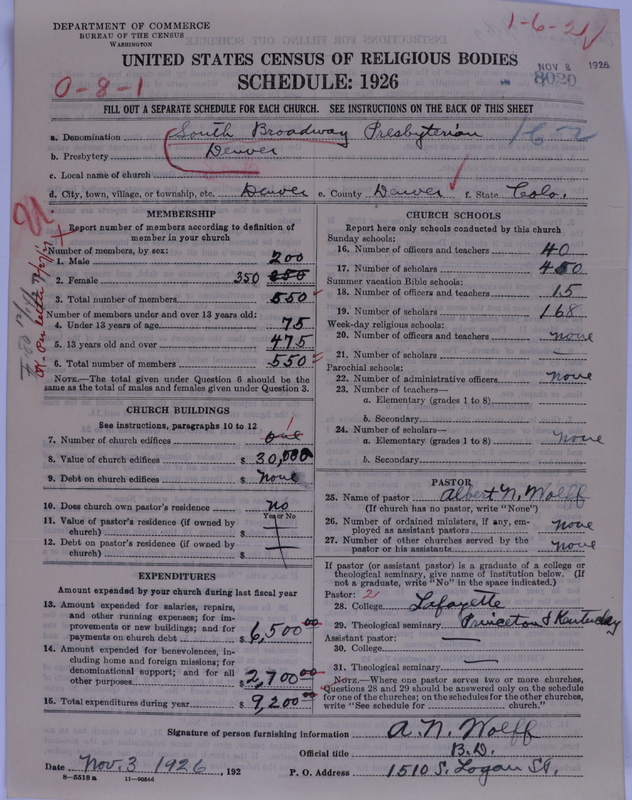 DEPARTMENT OF COMMERCE
BUREAU OF THE CENSUS
WASHINGTON
1-6-2
UNITED STATES CENSUS OF RELIGIOUS BODIES
SCHEDULE: 1926
NOV 8 1926
8020
0-8-1
FILL OUT A SEPARATE SCHEDULE FOR EACH CHURCH. SEE INSTRUCTIONS ON THE BACK OF THIS SHEET
a. Denomination South Broadway Presbyterian
b. Presbytery Denver
c. Local name of church
d. City, town, village, or township, etc. Denver e. County Denver f. State Colo.
MEMBERSHIP
Report number of members according to definition of member in your church
Number of members, by sex:
1. Male 200
2. Female 350
3. Total number of members 550
Number of members under and over 13 years old:
4. Under 13 years of age 75
5. 13 years old and over 475
6. Total number of members 550
NOTE.—The total given under Question 6 should be the same as the total of males and females given under Question 3.
CHURCH BUILDINGS
See instructions, paragraphs 10 to 12
7. Number of church edifices one 1
8. Value of church edifices $ 30,000
9. Debt on church edifices $ none
10. Does church own pastor's residence no
Yes or No
11. Value of pastor's residence (if owned by church) $
12. Debt on pastor's residence (if owned by church) $
EXPENDITURES
Amount expended by your church during last fiscal year
13. Amount expended for salaries, repairs, and other running expenses; for improvements or new buildings; and for payments on church debt $ 6,500.00
14. Amount expended for benevolences, including home and foreign missions; for denominational support; and for all other purposes $ 2,700.00
15. Total expenditures during year $ 9,200.00
CHURCH SCHOOLS
Report here only schools conducted by this church
Sunday schools:
16. Number of officers and teachers 40
17. Number of scholars 450
Summer vacation Bible schools:
18. Number of officers and teachers 15
19. Number of scholars 168
Week-day religious schools:
20. Number of officers and teachers none
21. Number of scholars —
Parochial schools:
22. Number of administrative officers none
23. Number of teachers—
a. Elementary (grades 1 to 8)
b. Secondary
24. Number of scholars—
a. Elementary (grades 1 to 8) none
b. Secondary
PASTOR
25. Name of pastor Albert N. Wolff
(If church has no pastor, write "None")
26. Number of ordained ministers, if any, employed as assistant pastors none
27. Number of other churches served by the pastor or his assistants none
If pastor (or assistant pastor) is a graduate of a college or theological seminary, give name of institution below. (If not a graduate, write "No" in the space indicated.)
Pastor: 2
28. College Lafayette
29. Theological seminary Princeton & Kentucky
Assistant pastor:
30. College —
31. Theological seminary —
NOTE.—Where one pastor serves two or more churches, Questions 28 and 29 should be answered only on the schedule for one of the churches; on the schedules for the other churches, write "See schedule for church."
Signature of person furnishing information A. N. Wolff
Official title B.D.
Date Nov. 3 1926, 192 P. O. Address 1510 S. Logan St.
8—5518 a 11—90546